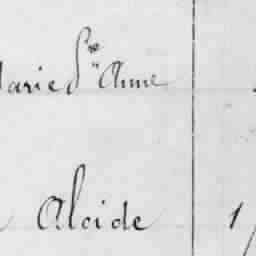 Marie Ste Anne
Alcide 1